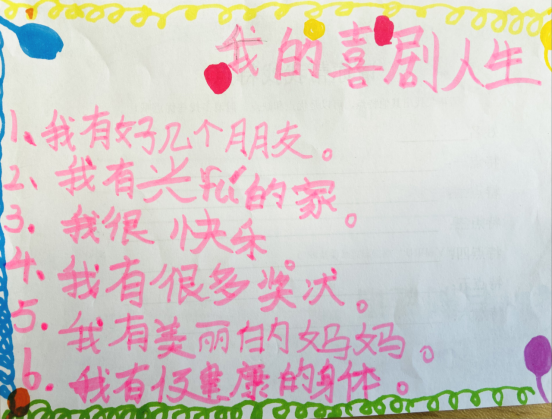 我的喜剧人生
1、我有好几个朋友。
2、我有的家。
3、我很快乐。
4、我有很多奖状。
5、我有美丽的妈妈。
6、我有健康的身体。